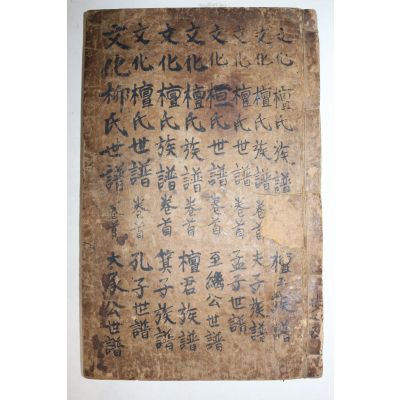 文化檀氏族譜 檀 族譜
文化檀氏族譜卷首 夫子族譜
文化檀氏族譜卷首 孟子世譜
文化 氏世譜卷首 至 公世譜
文化檀氏族譜卷首 檀君族譜
文化檀氏族譜卷首 箕子族譜
文化檀氏世譜卷首 孔子世譜
文化柳氏世譜卷首 大 公世譜